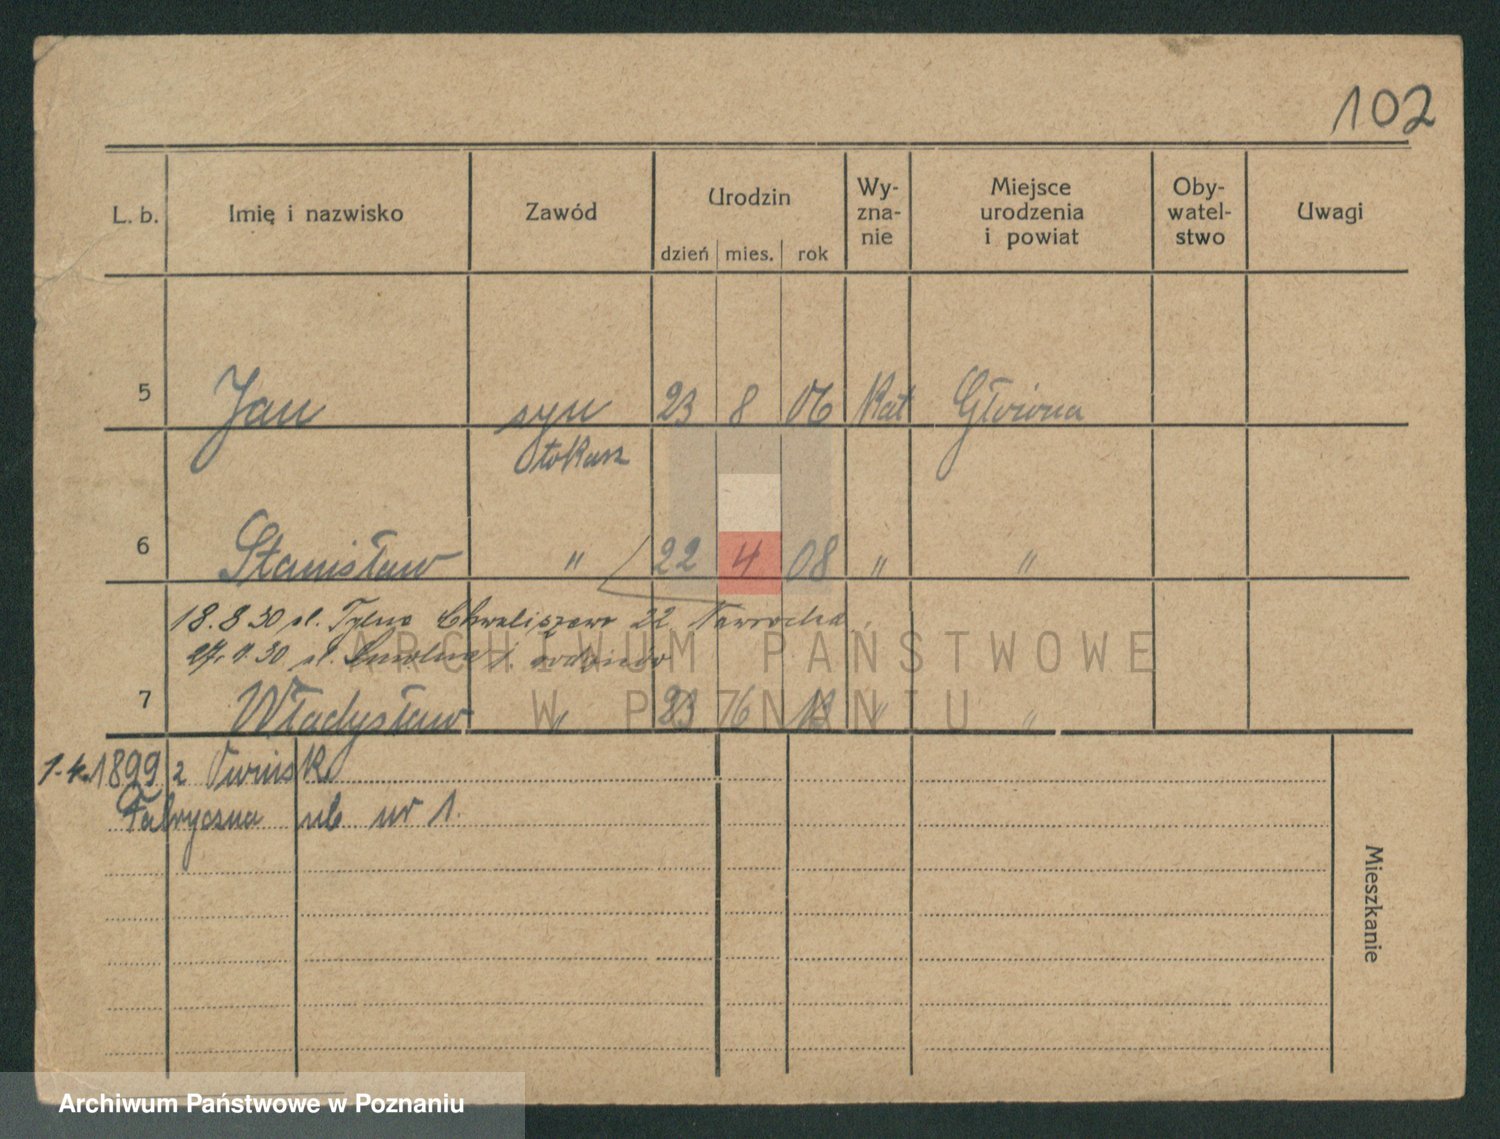 102
L. b. Imię i nazwisko Zawód Urodzin Wy-zna-nie Miejsce urodzenia i powiat Oby-watel-stwo Uwagi
dzień mies. rok
5 Jan syn 23 8 06 Kat Główna
tokarz
6 Stanisław " 22 4 08 " "
18.8.30 ul. Tylne Chwaliszewo 22 Nawrocka
30 ul.
ARCHIWUM PAŃSTWOWE
7 Władysław " 23 6 " "
W POZNANIU
1.4.1899 z
Fabryczna ul nr 1.
Mieszkanie
Archiwum Państwowe w Poznaniu